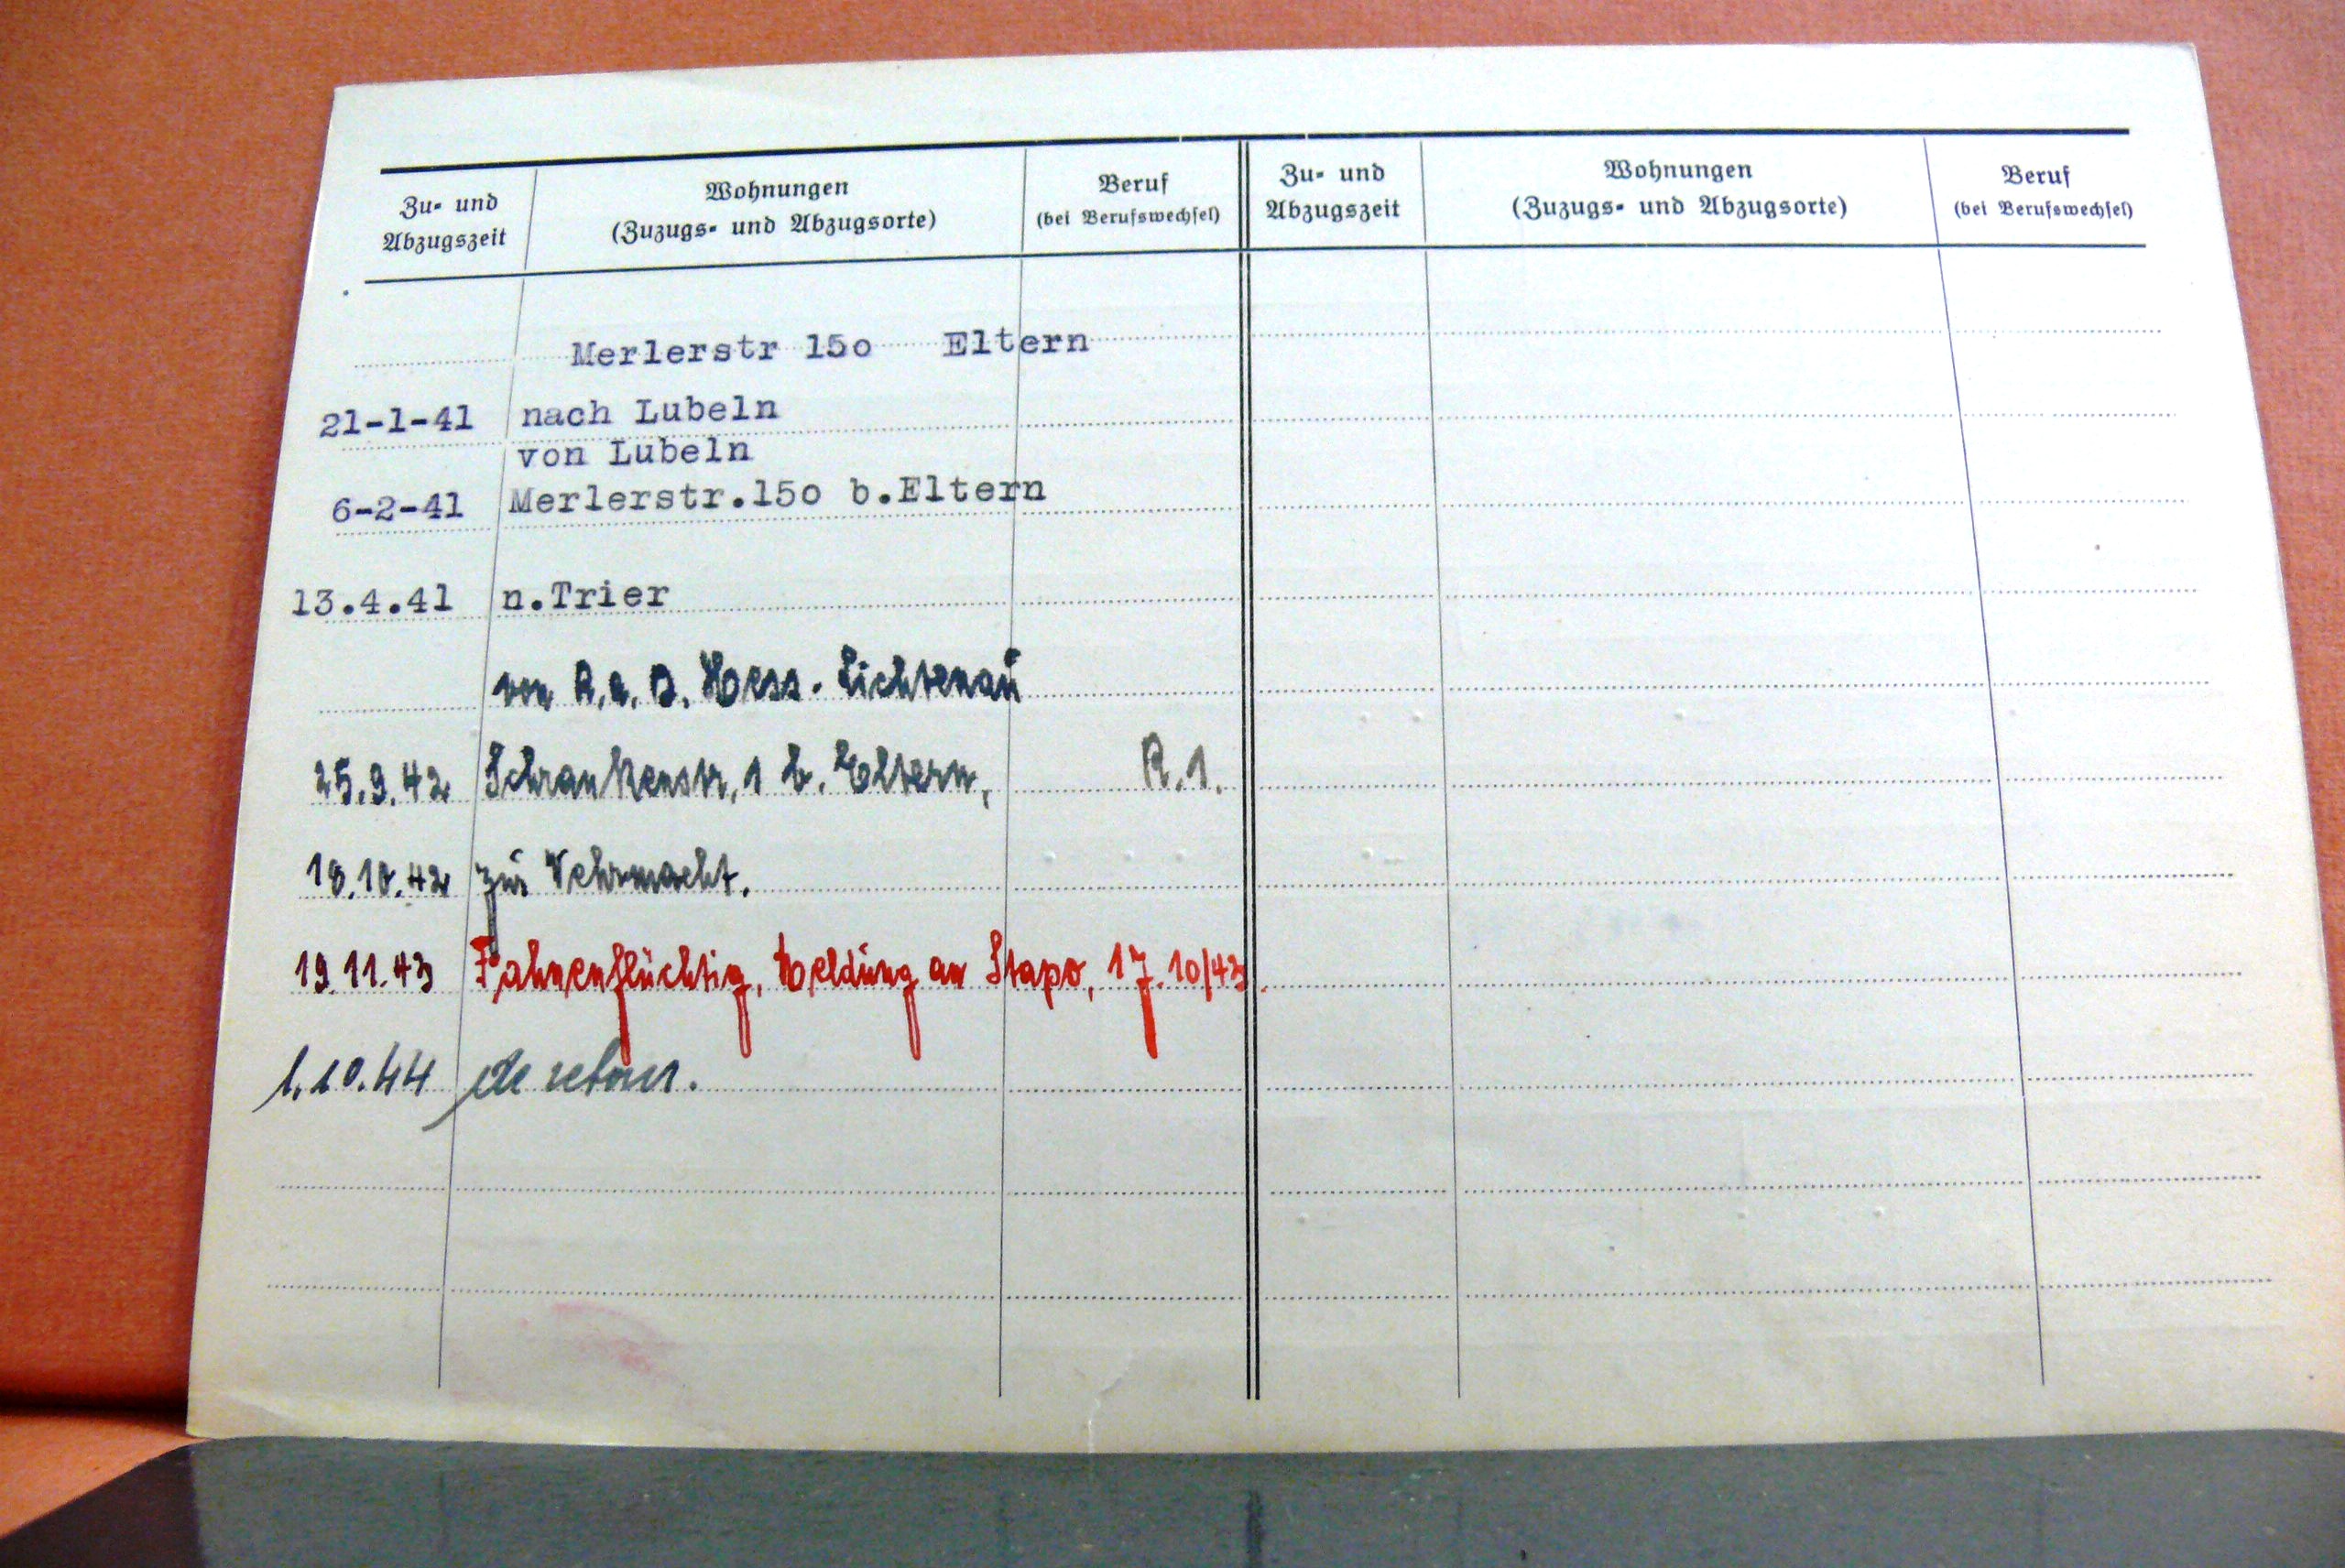 Zu- und
Abzugszeit
Wohnungen
(Zuzugs- und Abzugsorte)
Beruf
(bei Berufswechsel)
Zu- und
Abzugszeit
Wohnungen
(Zuzugs- und Abzugsorte)
Beruf
(bei Berufswechsel)
Merlerstr 15o Eltern
21-1-41 nach Lubeln
von Lubeln
6-2-41 Merlerstr.15o b.Eltern
13.4.41 n.Trier
von R.a.D. Hess. Lichtenau
25.9.42 Schrankenstr. 1 b. Eltern, R.1.
18.10.42 zur Wehrmacht.
19.11.43 Fahnenflüchtig, Meldung an Stapo, 17.10/43.
1.10.44 de retour.